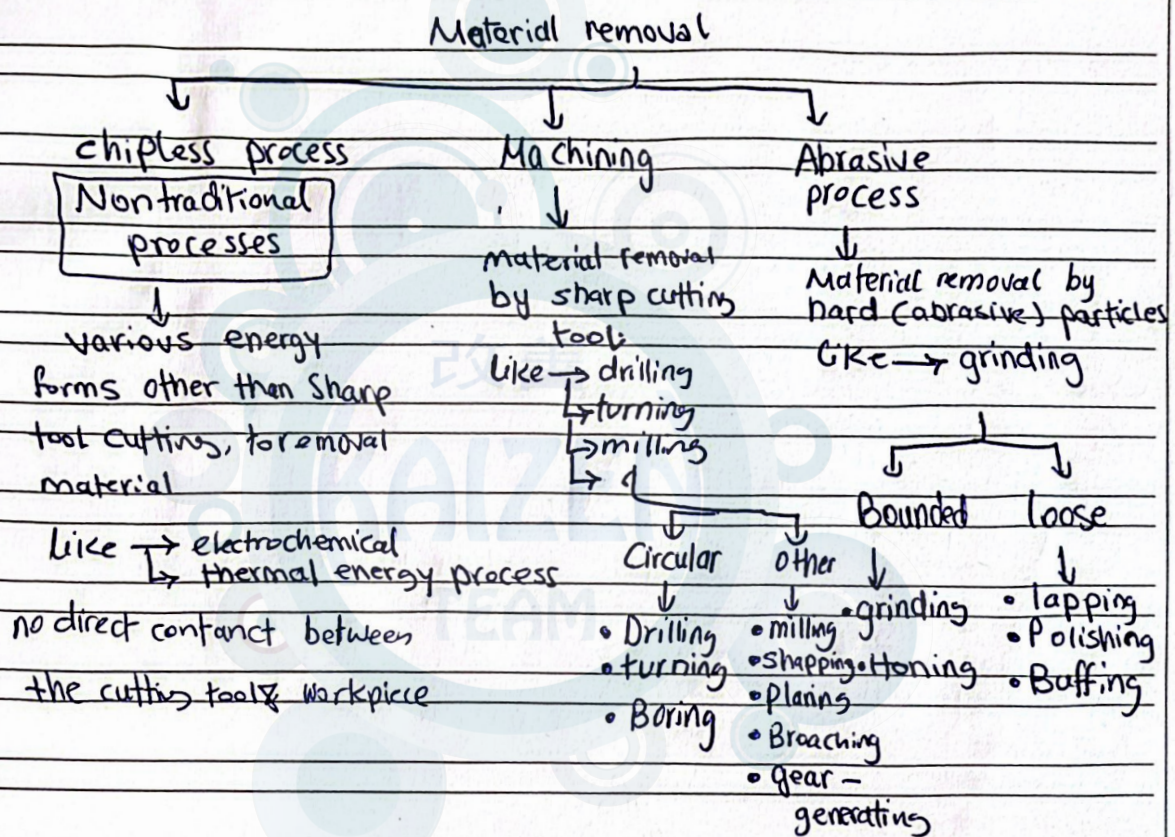 Material removal
chipless process
Nontraditional
processes
various energy
forms other then Sharp
tool cutting, to removal
material
Like → electrochemical
↳ thermal energy process
no direct contanct between
the cutting tool & workpiece
Machining
material removal
by sharp cutting
tool:
like → drilling
↳ turning
↳ milling
Circular
• Drilling
• turning
• Boring
other
• milling
• Shapping
• Planing
• Broaching
• gear -
generating
Abrasive
process
Material removal by
hard (abrasive) particles
Like → grinding
Bounded
• grinding
• Honing
loose
• lapping
• Polishing
• Buffing
改善
KAIZEN
TEAM